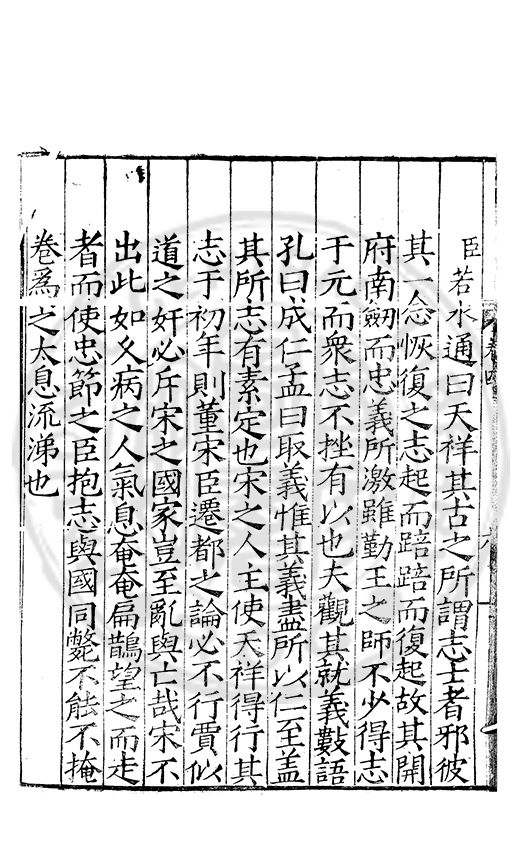 臣若水通曰天祥其古之所謂志士者邪彼
其一念恢復之志起而踣踣而復起故其開
府南劒而忠義所激雖勤王之師不少得志
于元而衆志不挫有以也夫觀其就義數語
孔曰成仁孟曰取義惟其義盡所以仁至盖
其所志有素定也宋之人主使天祥得行其
志于初年則董宋臣遷都之論必不行賈似
道之奸必斥宋之國家豈至亂與亡哉宋不
出此如久病之人氣息奄奄扁鵲望之而走
者而使忠節之臣抱志與國同斃不能不掩
卷爲之太息流涕也